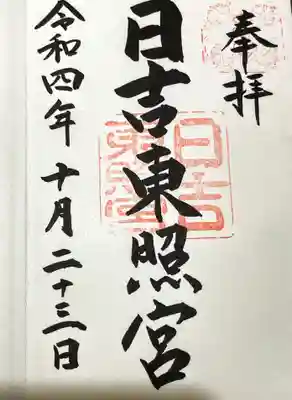 奉拝
日吉東照宮
日吉
東照宮
令和四年十月二十三日